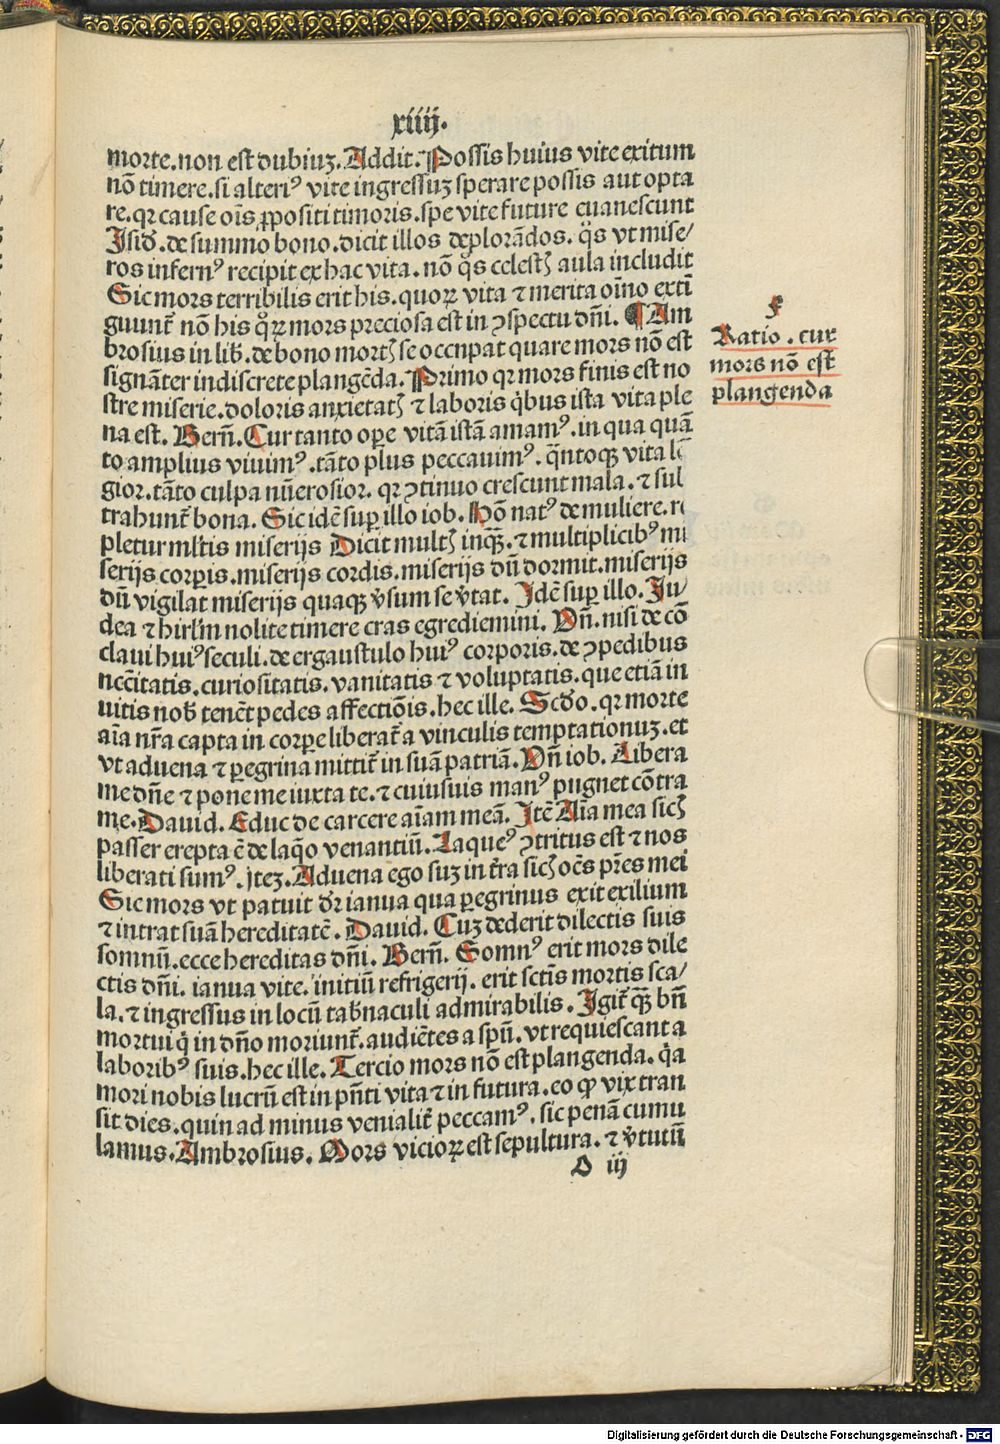 xiiij.
morte.non est dubiuȝ.Addit.Possis huius vite exitum
nō timere.si alteriꝰ vite ingressuȝ sperare possis aut opta
re.qꝛ cause oīs ꝓpositi timoris.spe vite future euanescunt
Isid̄.de summo bono.dicit illos deplorādos.q̊s vt mise/
ros infernꝰ recipit ex hac vita.nō q̊s celestꝭ aula includit
Sic mors terribilis erit his.quoꝝ vita ⁊ merita oīno exti
guunt̄ nō his q̊ꝝ mors preciosa est in ꝯspectu dn̄i. ¶ Am
brosius in lib̄.de bono mortꝭ se occnpat quare mors nō est
signāter indiscrete plangēda.Primo qꝛ mors finis est no
stre miserie.doloris anxietatꝭ ⁊ laboris q̇bus ista vita ple
na est. Bern̄.Cur tanto oꝑe vitā istā amamꝰ.in qua quā
to amplius viuimꝰ.tāto plus peccauimꝰ.q̄ntoqꝫ vita l
gior.tāto culpa nūerosior.qꝛ ꝯtinuo crescunt mala.⁊ sul
trahunt̄ bona. Sic idē suꝑ illo iob. Hō natꝰ de muliere.r
pletur ml̄tis miserijs Dicit multꝭ inqͣꝫ.⁊ multiplicibꝰ mi
serijs corꝑis.miserijs cordis.miserijs dū dormit.miserijs
dū vigilat miserijs quaqꝫ v̓sum se v̓tat. Idē suꝑ illo. Iu/
dea ⁊ hirl̄m nolite timere cras egrediemini. Dn̄. nisi de cō
claui huiꝰ seculi.de ergaustulo huiꝰ corporis.de ꝯpedibus
nec̄citatis.curiositatis.vanitatis ⁊ voluptatis.que etiā in
uitis nob̄ tenēt pedes affectiōis.hec ille. Scd̄o.qꝛ morte
aīa nr̄a capta in corꝑe liberat̄ a vinculis temptationuȝ.et
vt aduena ⁊ ꝑegrina mittit̄ in suā patriā.Vn̄ iob. Libera
me dn̄e ⁊ pone me iuxta te.⁊ cuiusuis manꝰ pugnet cōtra
me.Dauid. Educ de carcere aīam meā. Itē Aīa mea sicꝭ
passer erepta ē de laq̊o venantiū.Laqueꝰ ꝯtritus est ⁊ nos
liberati sumꝰ.jteȝ.Aduena ego suȝ in t̄ra sicꝭ oēs pr̄es mei
Sic mors vt patuit d̓r ianua qua ꝑegrinus exit exilium
⁊ intrat suā hereditatē. Dauid. Cuȝ dederit dilectis suis
somnū.ecce hereditas dn̄i. Bern̄. Somnꝰ erit mors dile
ctis dn̄i. ianua vite. initiū refrigerij. erit sct̄is mortis sca/
la.⁊ ingressus in locū tab̄naculi admirabilis. Igit̄ qͣꝫ bn̄
mortui q̇ in dn̄o moriunt̄.audiētes a spū.vt requiescant a
laboribꝰ suis.hec ille. Tercio mors nō est plangenda. q̇a
mori nobis lucrū est in pn̄ti vita ⁊ in futura.eo ꝙ vix tran
sit dies.quin ad minus venialit̄ peccamꝰ.sic penā cumu
lamus.Ambrosius. Mors vicioꝝ est sepultura. ⁊ v̓tutū
D iij
F
Ratio.cur
mors nō est
plangenda
Digitalisierung gefördert durch die Deutsche Forschungsgemeinschaft - DFG